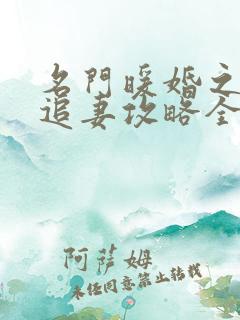 名門暖婚之
追妻攻略全
阿薩姆
未经同意禁止转载